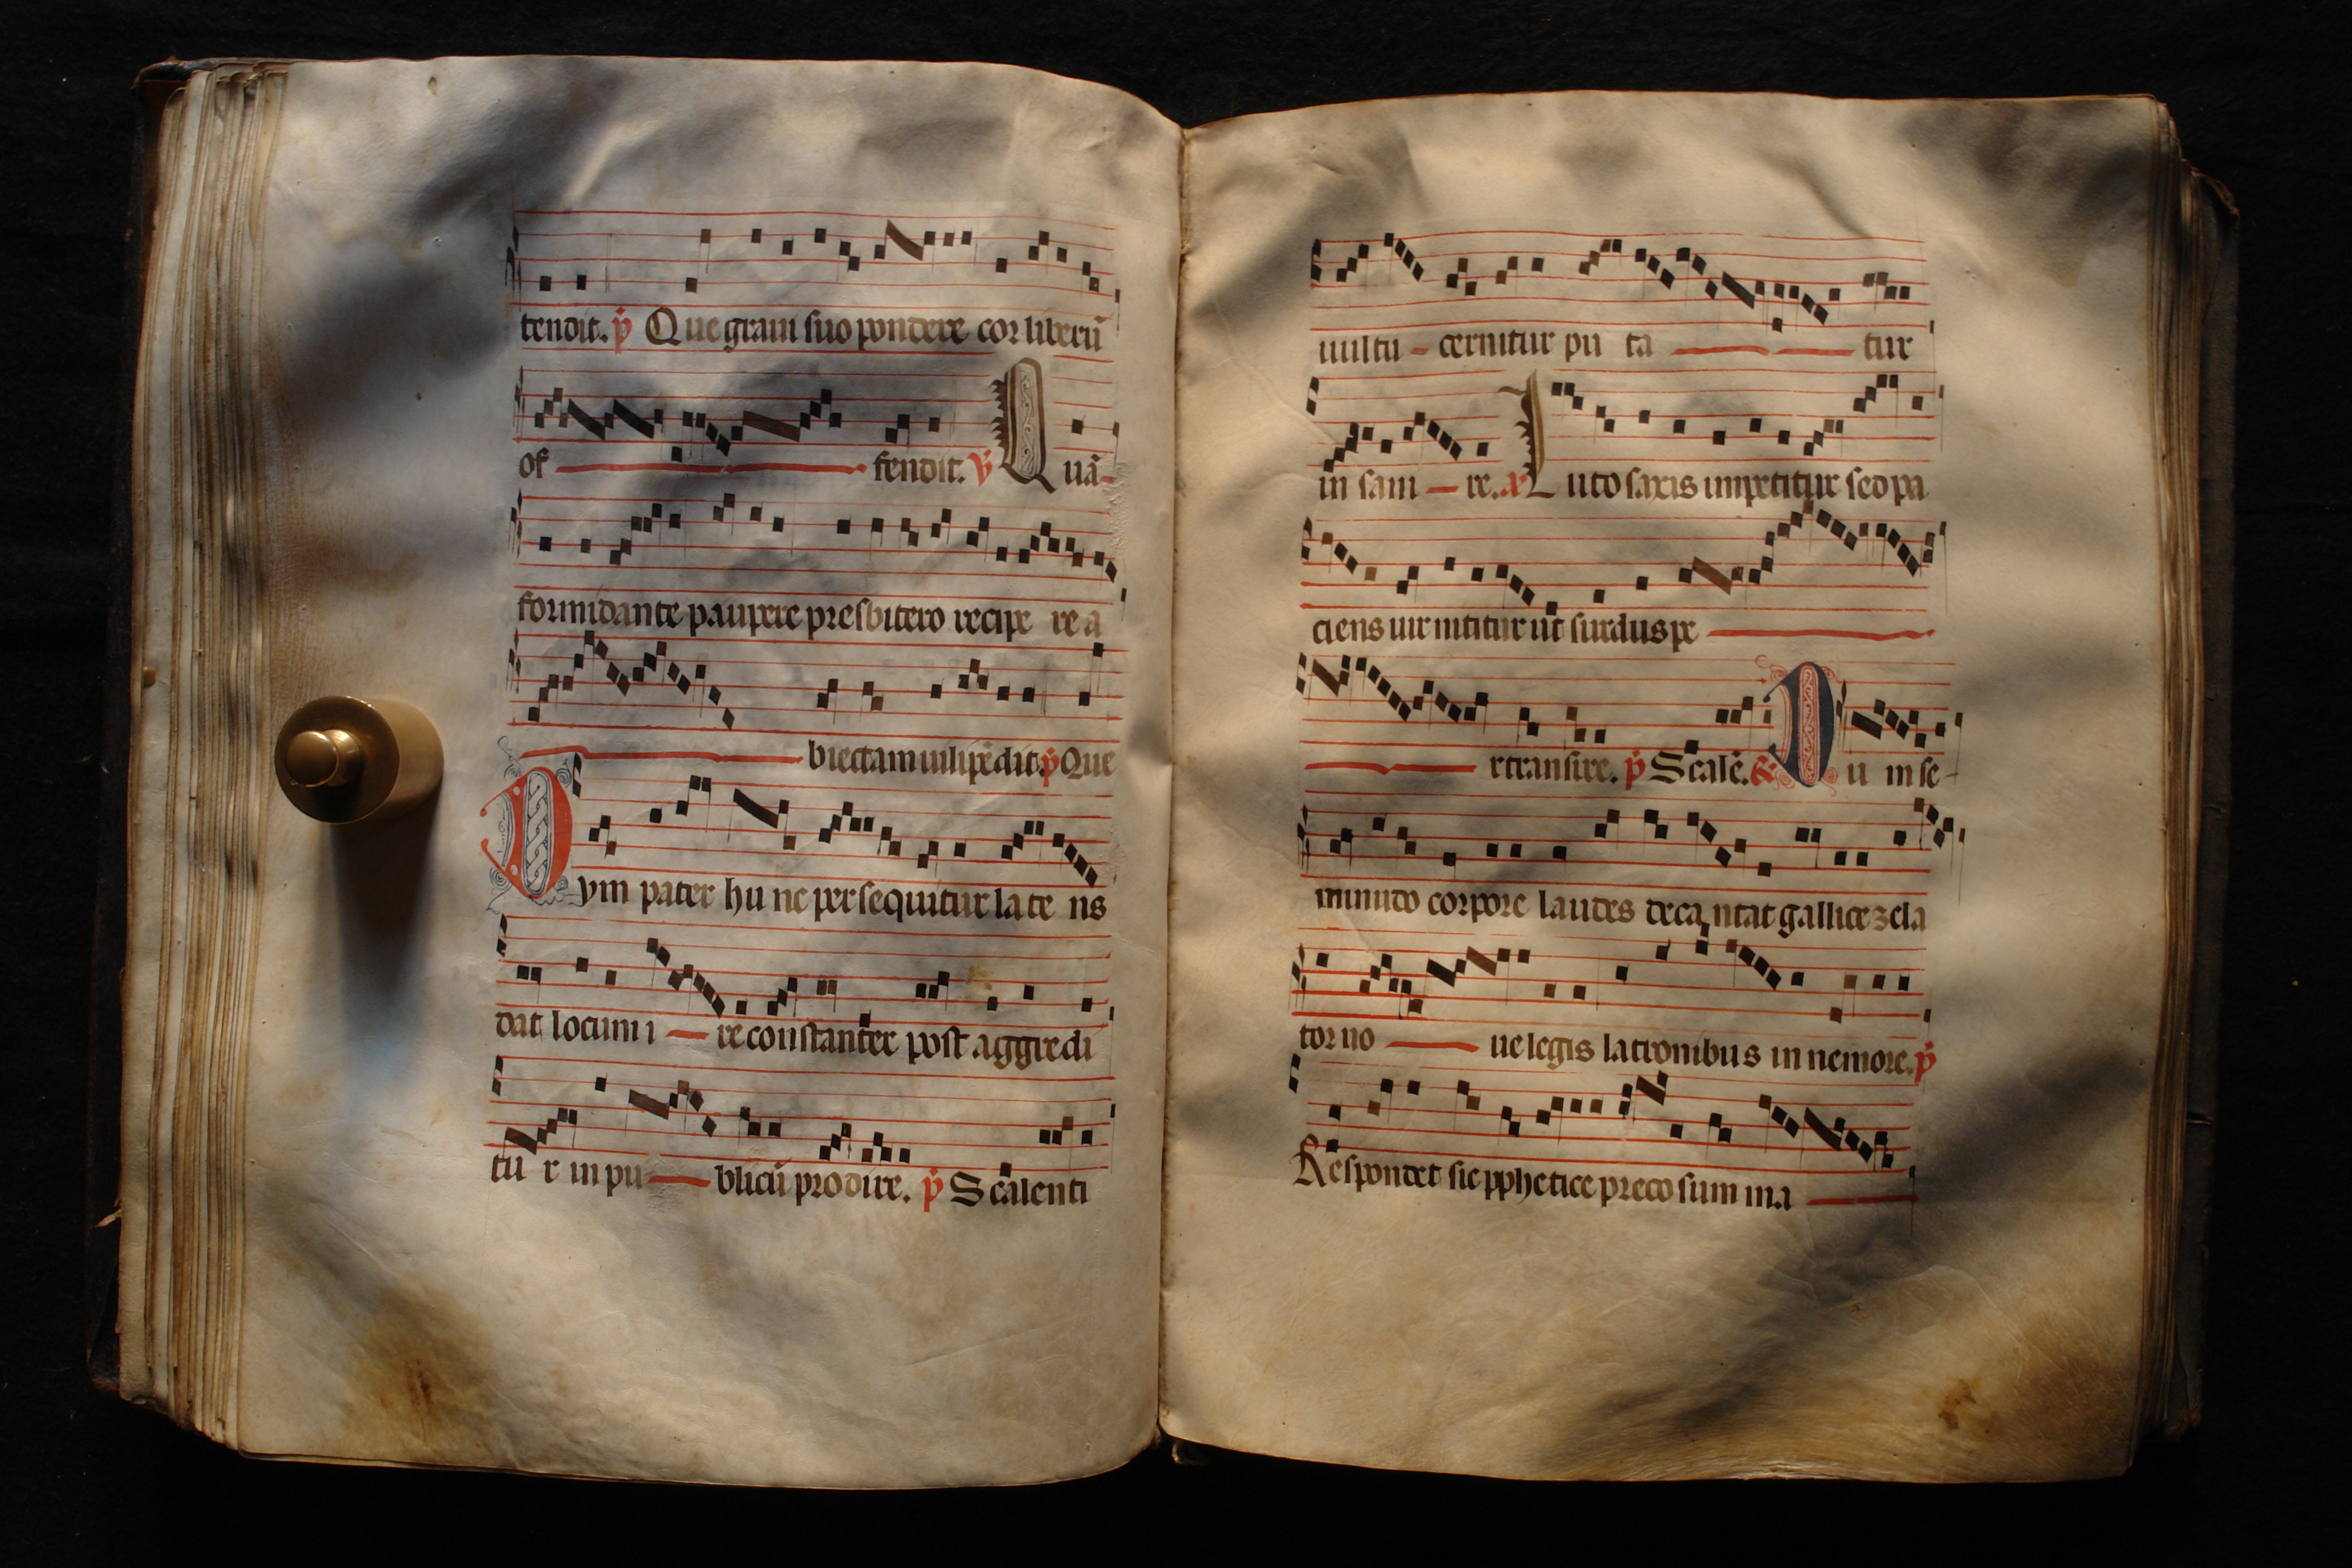 tendit. p̄ Que graui suo pondere cor liberū
of fendit. v̄ Quā-
formidante paupere presbitero recipe re a
biectam uilipēdit. p̄ Que
Dym pater hu nc persequitur la te ns
dat locum i re constanter post aggredi
tu r in pu blicū prodire. p̄ Scalenti
uultu - cernitur pu ta tur
in sani re. Luto saxis impetitur sed pa
ciens uir nititur ut surdus pe
rtransire. p̄ Scalē. Du m se-
minudo corpore laudes deca ntat gallice zela
tor no ue legis latronibus in nemore. p̄
Respondet sic pphetice preco sum ma